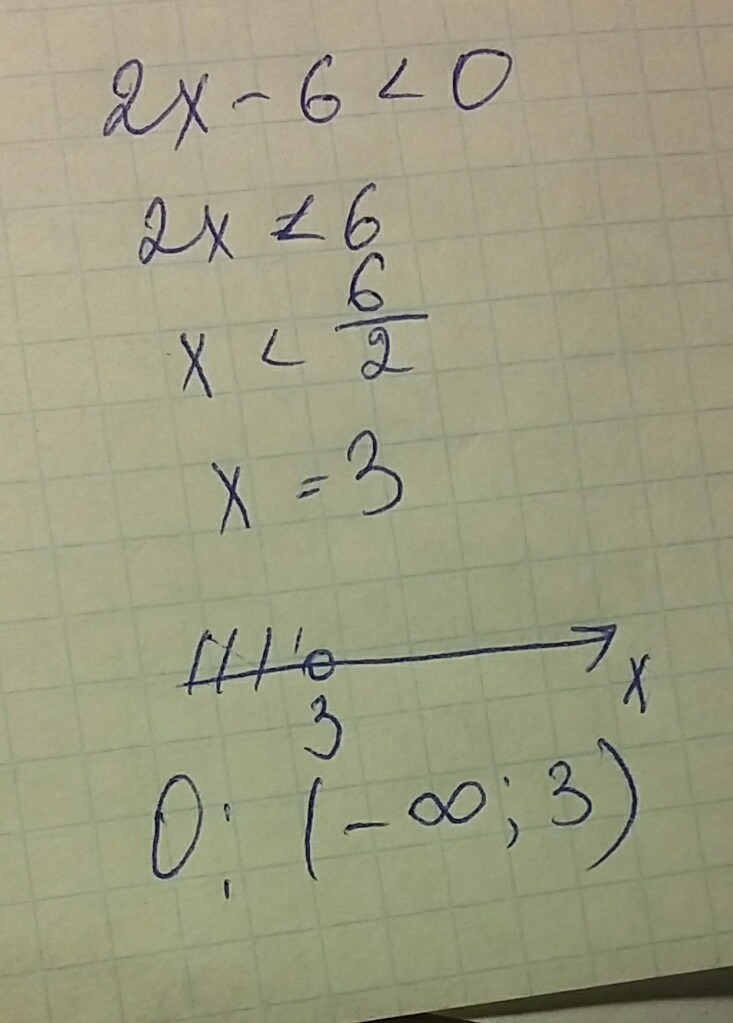 2x - 6 < 0
2x < 6
x < 6/2
x = 3
3 x
O: (-∞; 3)